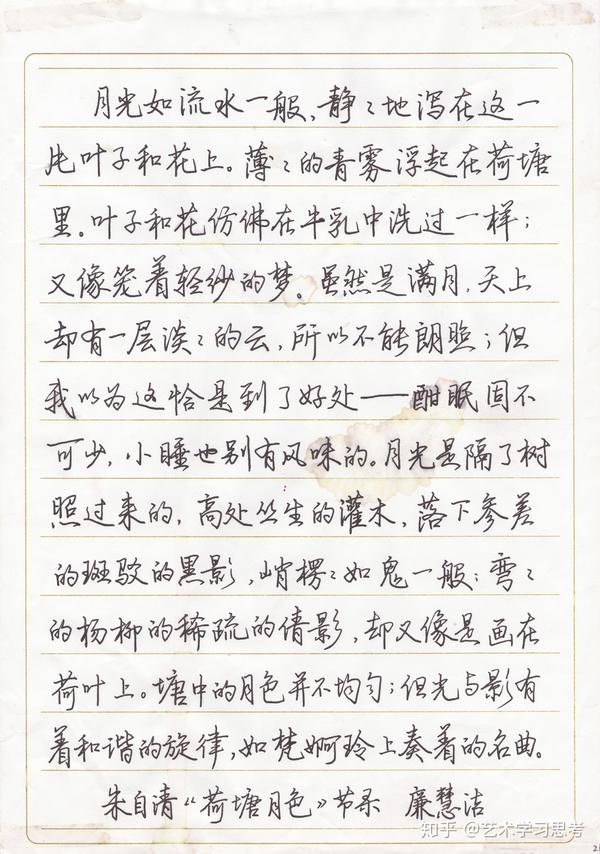 月光如流水一般，静々地泻在这一
片叶子和花上。薄々的青雾浮起在荷塘
里。叶子和花仿佛在牛乳中洗过一样；
又像笼着轻纱的梦。虽然是满月，天上
却有一层淡々的云，所以不能朗照；但
我以为这恰是到了好处——酣眠固不
可少，小睡也别有风味的。月光是隔了树
照过来的，高处丛生的灌木，落下参差
的斑驳的黑影，峭楞々如鬼一般；弯々
的杨柳的稀疏的倩影，却又像是画在
荷叶上。塘中的月色并不均匀；但光与影有
着和谐的旋律，如梵婀玲上奏着的名曲。
朱自清“荷塘月色”节录 廉慧洁
知乎 @艺术学习思考